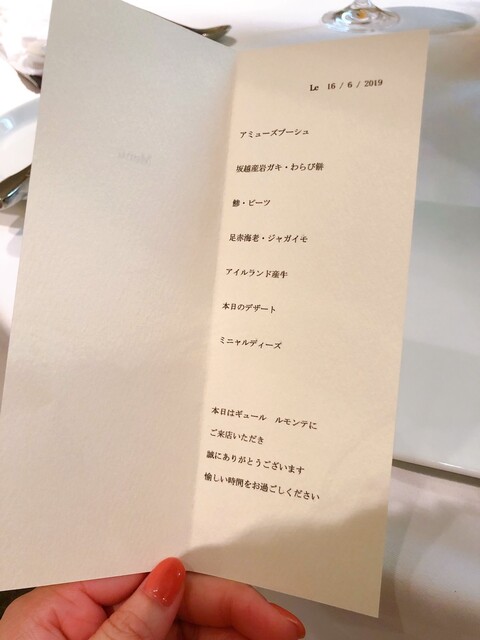 Le 16 / 6 / 2019
アミューズブーシュ
坂越産岩ガキ・わらび餅
鯵・ビーツ
足赤海老・ジャガイモ
アイルランド産牛
本日のデザート
ミニャルディーズ
本日はギュール ルモンテに
ご来店いただき
誠にありがとうございます
愉しい時間をお過ごしください